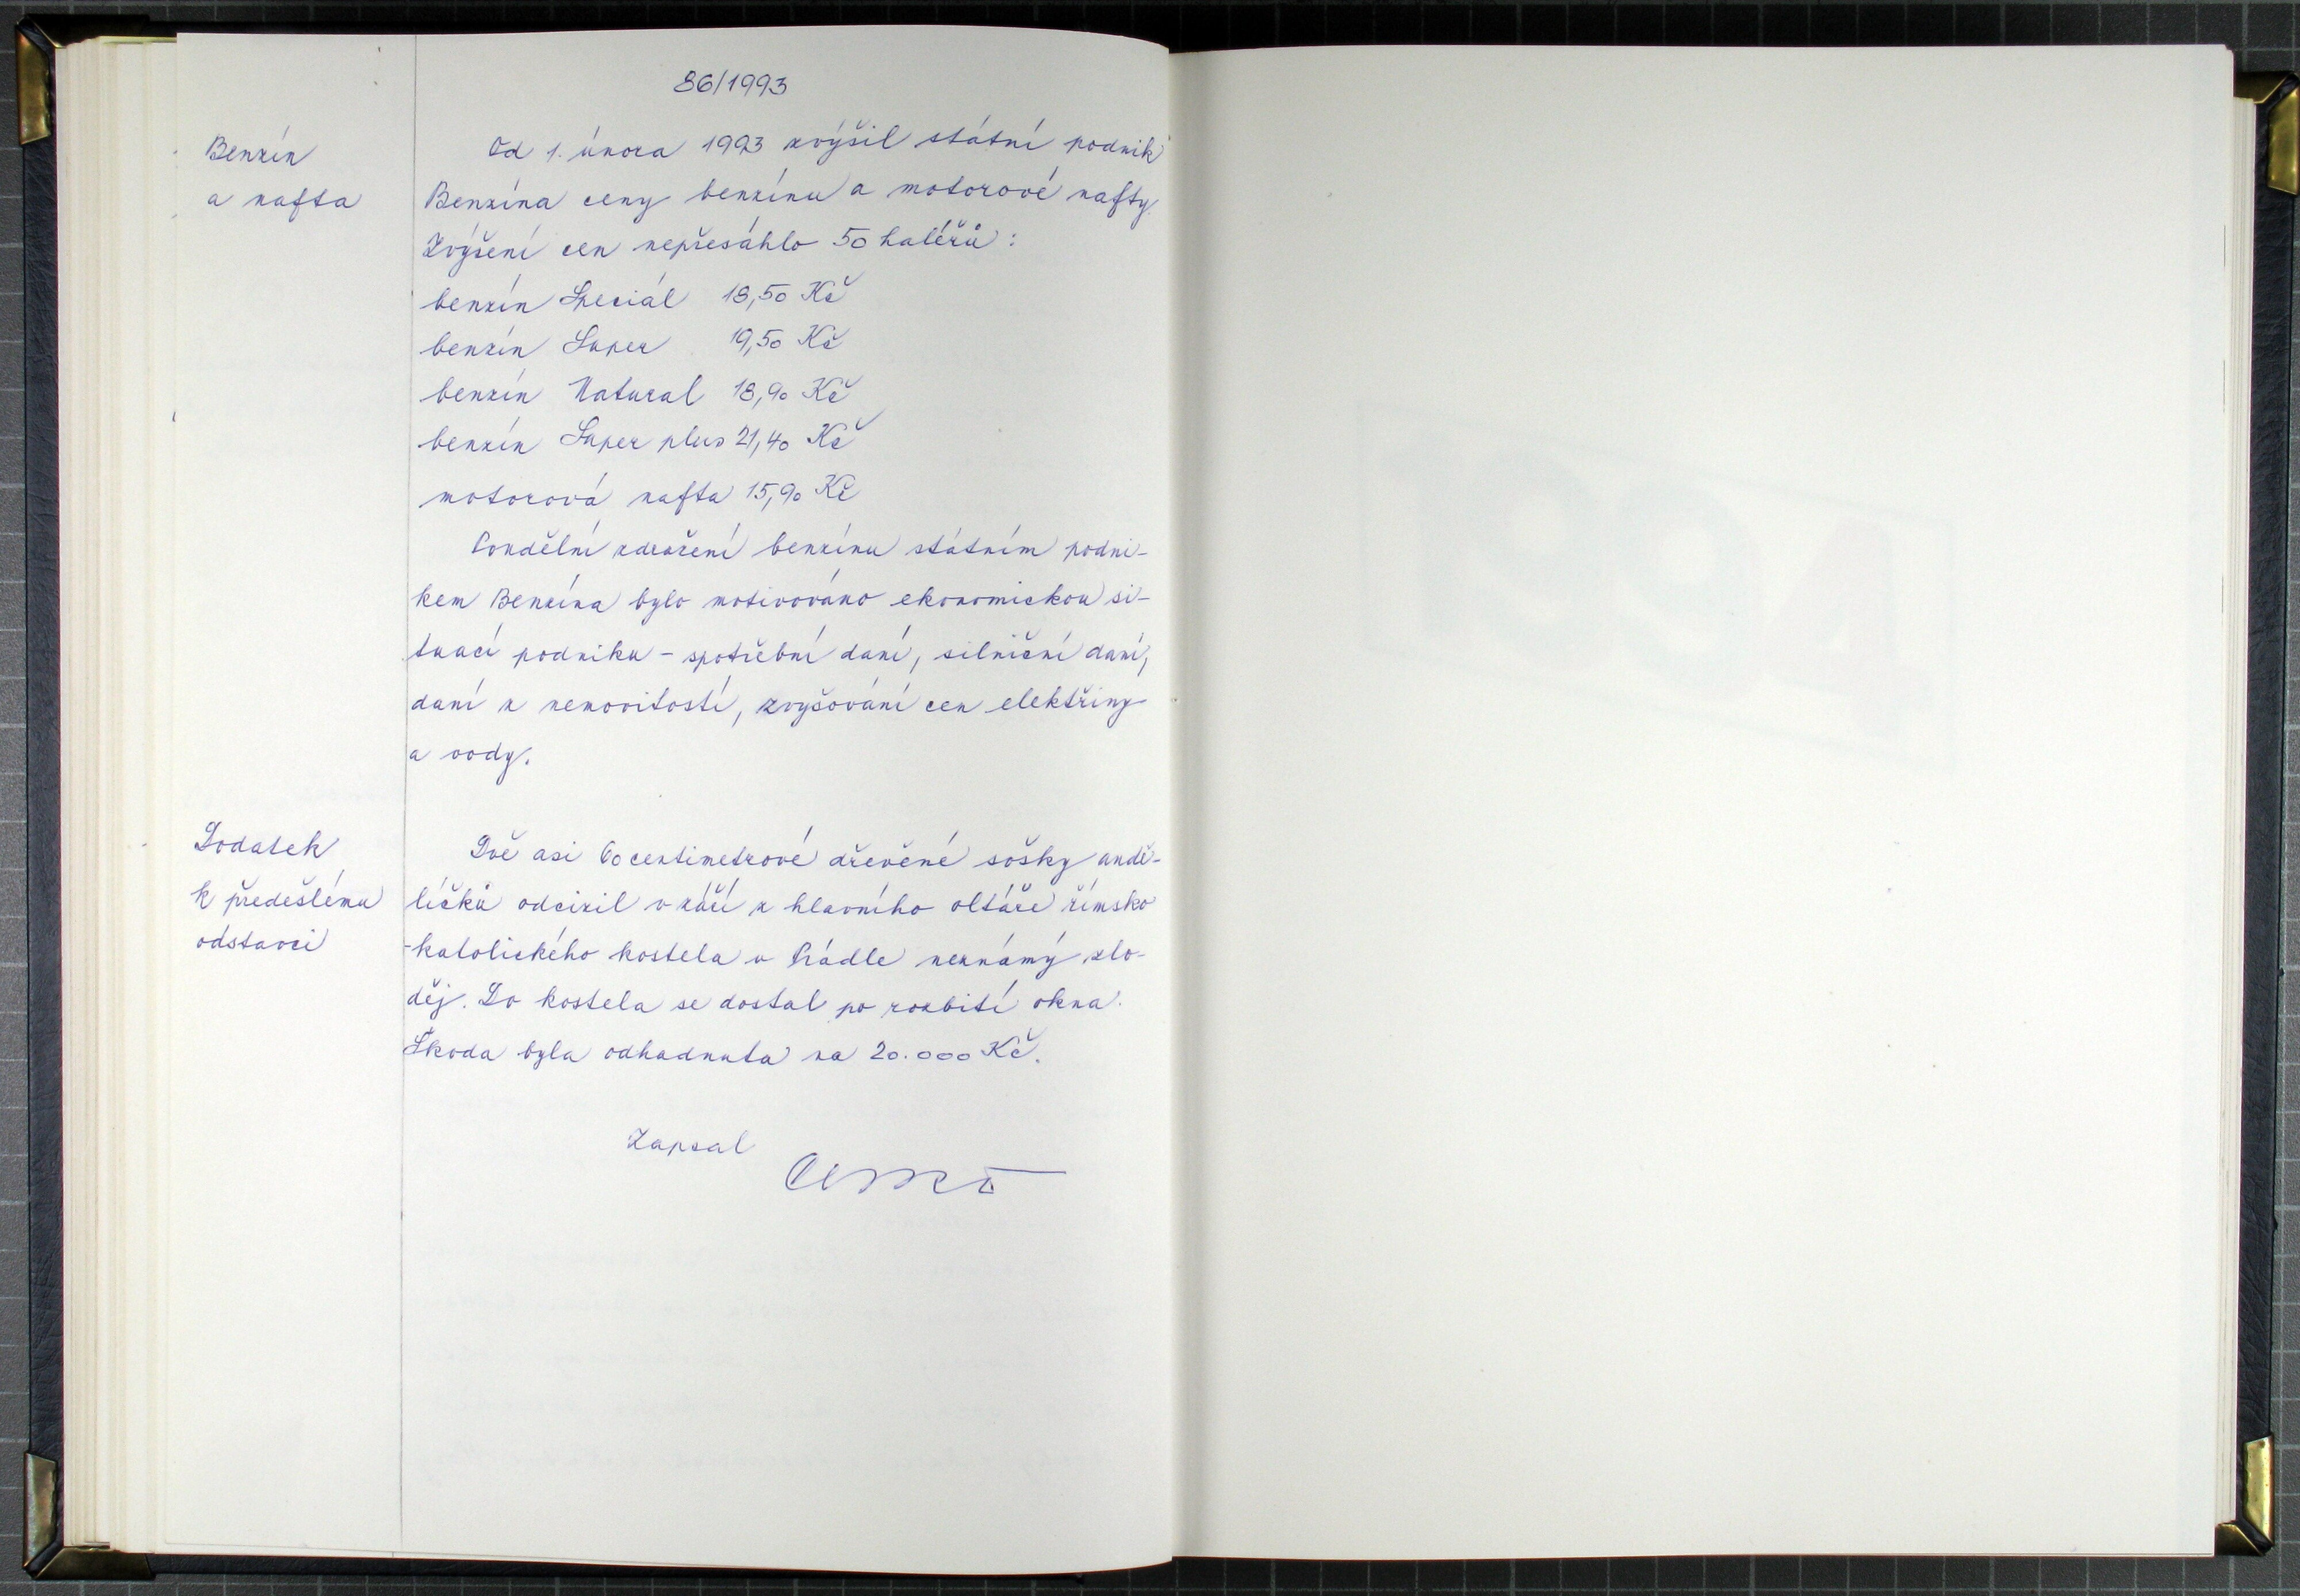 86/1993
Benzín
a nafta
Od 1. února 1993 zvýšil státní podnik
Benzína ceny benzínu a motorové nafty.
Zvýšení cen nepřesáhlo 50 haléřů:
benzín Speciál 18,50 Kč
benzín Super 19,50 Kč
benzín Natural 18,90 Kč
benzín Super plus 21,40 Kč
motorová nafta 15,90 Kč
Pondělní zdražení benzínu státním podni-
kem Benzína bylo motivováno ekonomickou si-
tuací podniku - spotřební daní, silniční daní,
daní z nemovitostí, zvyšování cen elektřiny
a vody.
Dodatek
k předešlému
odstavci
Dvě asi 60 centimetrové dřevěné sošky andě-
líčků odcizil v září z hlavního oltáře římsko
-katolického kostela v Prádle neznámý zlo-
děj. Do kostela se dostal po rozbití okna.
Škoda byla odhadnuta na 20.000 Kč.
Zapsal